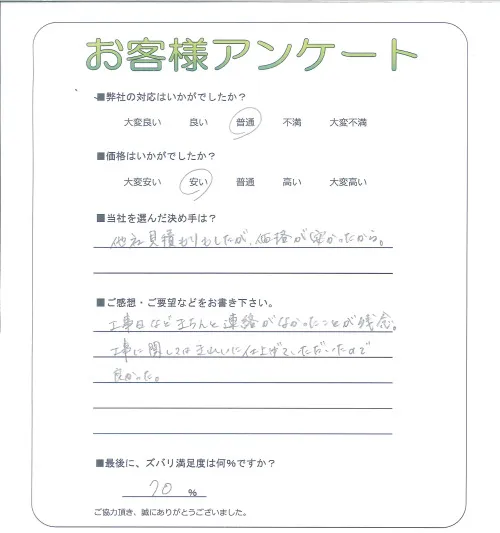 お客様アンケート
■弊社の対応はいかがでしたか？
大変良い 良い 普通 不満 大変不満
■価格はいかがでしたか？
大変安い 安い 普通 高い 大変高い
■当社を選んだ決め手は？
他社見積もりもしたが、価格が安かったから。
■ご感想・ご要望などをお書き下さい。
工事日などきちんと連絡がなかったことが残念。
工事に関してはきれいに仕上げていただいたので
良かった。
■最後に、ズバリ満足度は何％ですか？
70 ％
ご協力頂き、誠にありがとうございました。